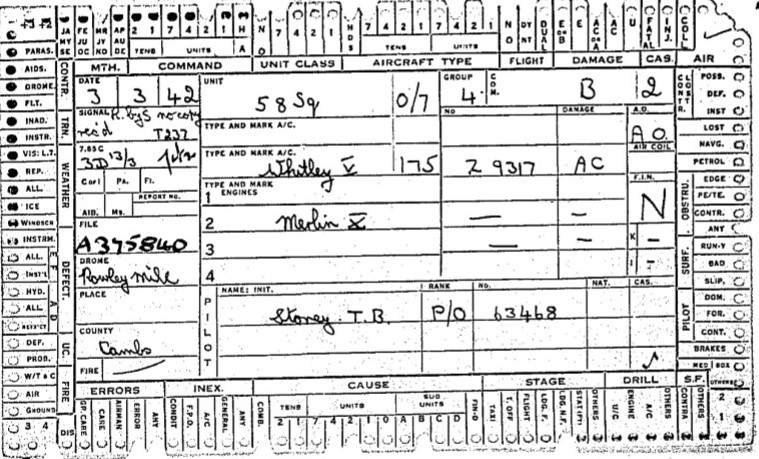 JA FE MR AP 2 1 7 4 2 1 H NO 7 4 2 1 HDS 7 4 2 1 7 4 2 1 NO DY NT DUAL E or B AC or A AC U FATAL INJ. COLL
MY JU JY AU
SE OC NO DE TENS UNITS A TENS UNITS
PARAS. CONTR. MTH. COMMAND UNIT CLASS AIRCRAFT TYPE FLIGHT DAMAGE CAS. AIR
AIDS. DATE UNIT GROUP COM. POSS.
DROME. 3 3 42 58 Sq 0/7 4 B 2 DEF.
FLT. SIGNAL R. by S no copy INST
INAD. TRN. rec'd T237 TYPE AND MARK A/C. NO DAMAGE A.O. LOST
INSTR. A.O. NAVG.
VIS: L.T. 765C TYPE AND MARK A/C. AIR COIL PETROL
REP. WEATHER 3D 13/3 Whitley V 175 Z 9317 AC
ALL. Cor1 PA. Fl. TYPE AND MARK ENGINES F.I.N. OBSTRU. EDGE
ICE REPORT NO. 1 PE/TE.
WINDSCN AID. Ms. 2 Merlin X — — N CONTR.
INSTRM. FILE ANY
ALL. A375840 3 — — K — SURF. RUN-Y
INST'L DEFECT. DROME BAD
HYD. Rowley Mile 4 I — SLIP.
ALL PLACE NAME: INIT. RANK No. NAT. CAS. DOM.
PILOT Stoney T.B. P/O 63468 PILOT FOR.
DEF. UC. COUNTY CONT.
PROB. Cambs BRAKES
W/T & C FIRE FIRE — MED BOX
AIR ERRORS INEX. CAUSE STAGE DRILL S.F. OTHERS
GROUND OP. CARE CARE AIRMAN ERROR ANY CONDIT F.P.O. A/C GENERAL ANY COMB. TENS UNITS SUB UNITS FIN-O TAXI T. OFF FLIGHT LDG. F. LDG. N.F. OTHERS U/C ENGINE A/C OTHERS CONTRA OTHERS 2
3 4 DIS 2 1 7 4 2 1 0 A B C D 1